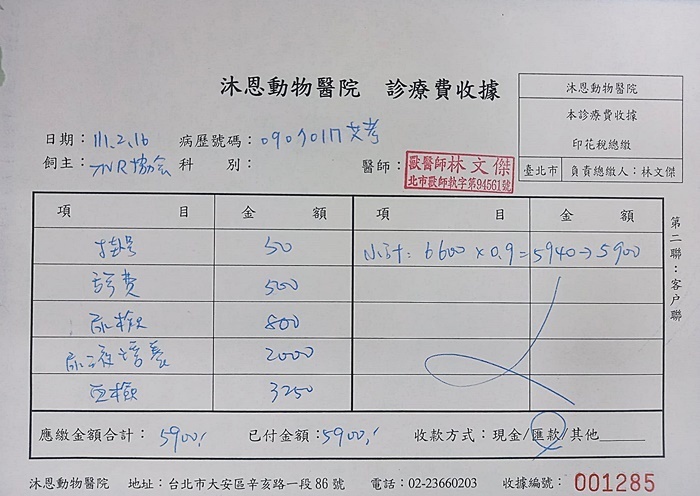 沐恩動物醫院 診療費收據
沐恩動物醫院
本診療費收據
印花稅總繳
臺北市 負責總繳人：林文傑
日期：111.2.16 病歷號碼：
飼主：TNR協會 科 別： 醫師：獸醫師林文傑
北市獸師執字第94561號
項 目 金 額 項 目 金 額
掛號 50 小計：6600×0.9=5940→5900
診費 500
尿檢 800
尿液培養 2000
血檢 3250
應繳金額合計：5900.- 已付金額：5900.- 收款方式：現金/匯款/其他
第二聯：客戶聯
沐恩動物醫院 地址：台北市大安區辛亥路一段86號 電話：02-23660203 收據編號：001285